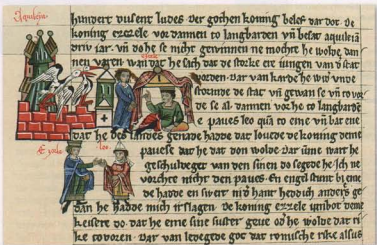 Aquileja
hundert dusent ludes der gothen koning beles dar dot. De
koning ezzele vor dannen to langbarden vñ besat aquileia
driv iar. vñ do he se nicht gewinnen ne mochte he wolde dan
nen varen want he sach dat de storke ere iungen van d' stat
vorden. Dar van karde he wid vnde
stormde de stat vñ gewan se vñ ro
de se al. dannen vor he to langbarde
e paues leo quā to eme vñ bat eme
dat he des landes genade hadde dat louede de koning deme
pauese dat he dat don wolde. Dar ūme wart he
geschuldeget van den sinen do segede he. Ich ne
vorchte nicht den paues. En engel stunt bi eme
de hadde en swert in d' hant heddich anders ge
dan he hadde mich irslagen. de koning ezzele unbot deme
keisere do. dat he eme sine suster geue od' he wolde dat ri
ke tovoren. Dar van levegede got dat romische rike alsus
ezzele
leo